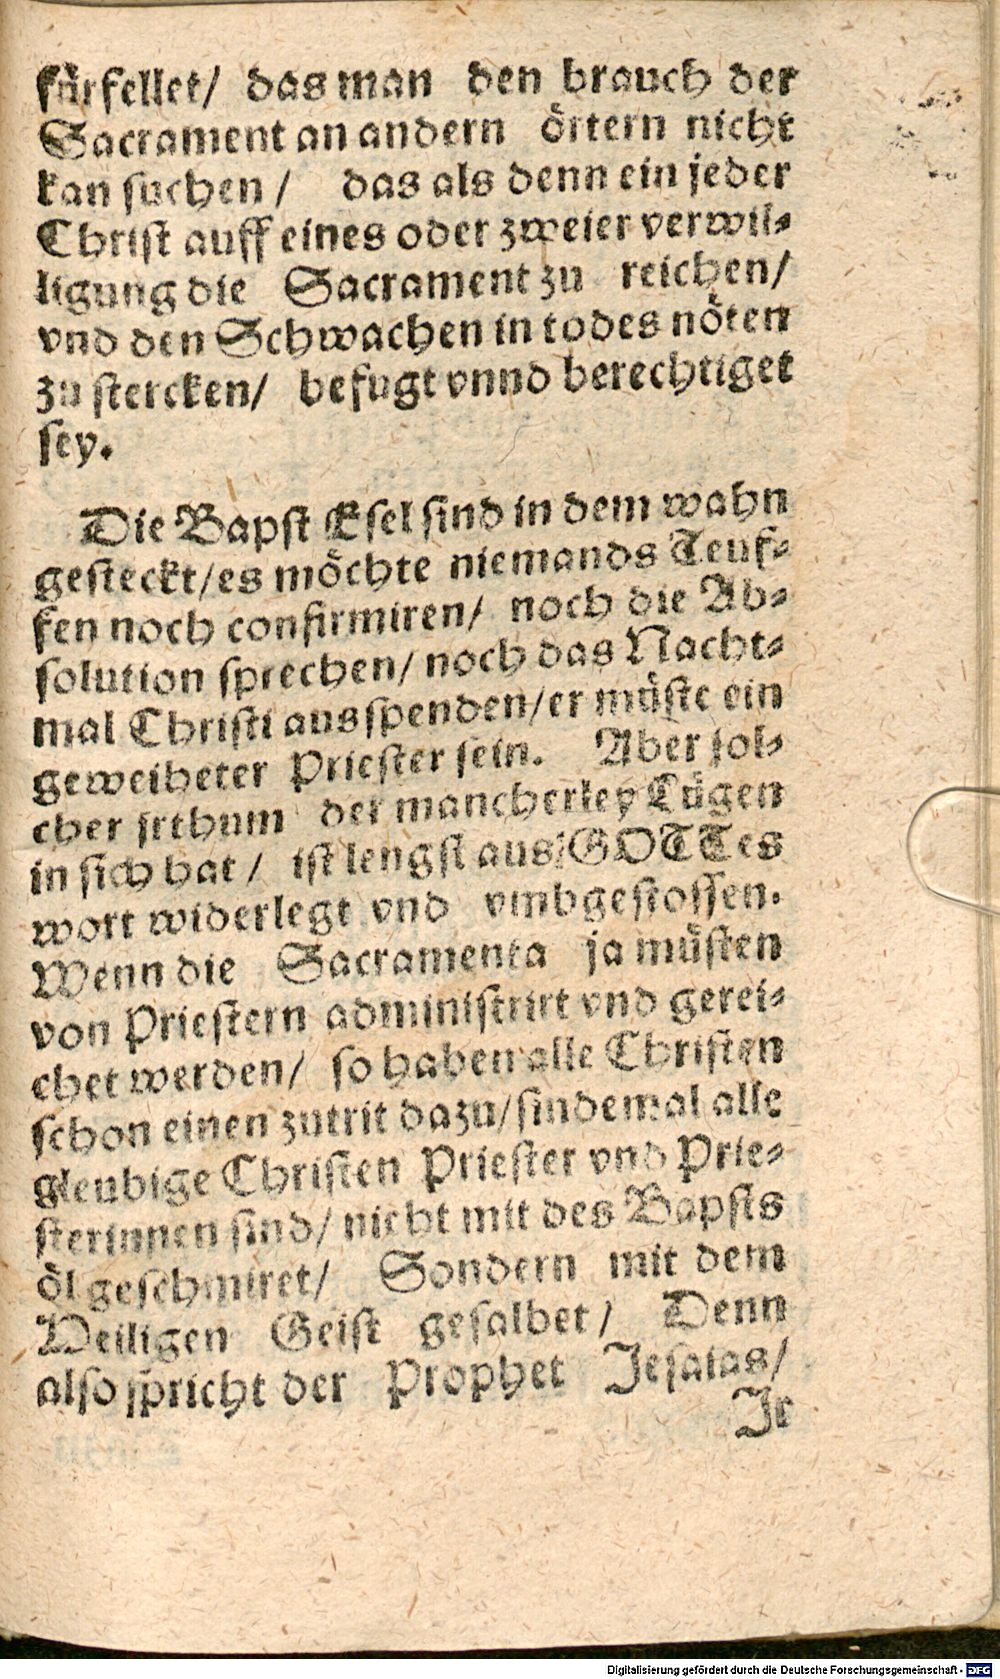 fürfellet/ das man den brauch der
Sacrament an andern örtern nicht
kan suchen / das als denn ein jeder
Christ auff eines oder zweier verwil⸗
ligung die Sacrament zu reichen/
vnd den Schwachen in todes nöten
zu stercken/ befugt vnnd berechtiget
sey.
Die Bapst Esel sind in dem wahn
gesteckt/es möchte niemands Teuf⸗
fen noch confirmiren/ noch die Ab⸗
solution sprechen/ noch das Nacht⸗
mal Christi ausspenden/er müste ein
geweiheter Priester sein. Aber sol⸗
cher irthum der mancherley Lügen
in sich hat / ist lengst aus GOTTes
wort widerlegt vnd vmbgestossen.
Wenn die Sacramenta ja müsten
von Priestern administrirt vnd gerei⸗
chet werden/ so haben alle Christen
schon einen zutrit dazu/sindemal alle
gleubige Christen Priester vnd Prie⸗
sterinnen sind/ nicht mit des Bapsts
öl geschmiret/ Sondern mit dem
Heiligen Geist gesalbet/ Denn
also spricht der Prophet Jesaias/
Jr
Digitalisierung gefördert durch die Deutsche Forschungsgemeinschaft - DFG